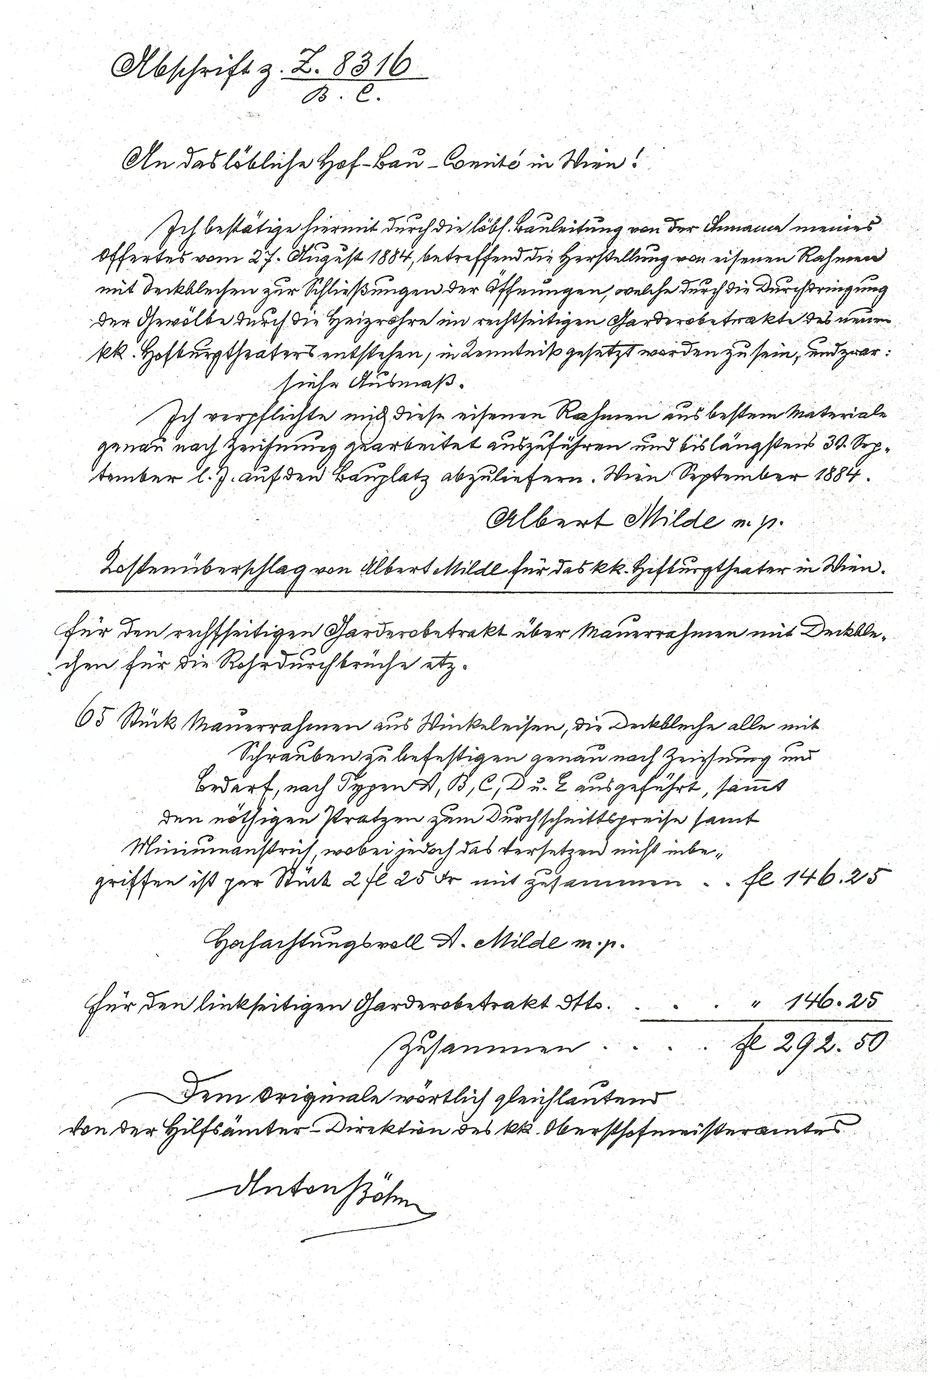 Abschrift z. Z. 8316
B. C.
An das löbliche Hof-Bau-Comité in Wien!
Ich bestätige hiermit durch die löbl. Bauleitung von der Annahme meines
Offertes vom 27. August 1884, betreffend die Herstellung von eisenen Rahmen
mit Deckblechen zur Schließungen der Öffnungen, welche durch die Durchdringung
der Gewölbe durch die Heizrohre im rechtseitigen Garderobetrakte des neuen
kk. Hofburgtheaters entstehen, in Kenntniß gesetzt worden zu sein, und zwar:
siehe Ausmaß.
Ich verpflichte mich diese eisenen Rahmen aus bestem Materiale
genau nach Zeichnung gearbeitet auszuführen und bis längstens 30. Sep-
tember l. J. auf den Bauplatz abzuliefern. Wien September 1884.
Albert Milde m. p.
Kostenüberschlag von Albert Milde für das kk. Hofburgtheater in Wien.
für den rechtseitigen Garderobetrakt über Mauerrahmen mit Deckble-
chen für die Rohrdurchbrüche etz.
65 Stück Mauerrahmen aus Winkeleisen, die Deckbleche alle mit
Schrauben zu befestigen genau nach Zeichnung und
Bedarf, nach Typpen A, B, C, D u. E ausgeführt, sam̅t
den nöthigen Pratzen zum Durchschnittspreise samt
Miniumanstrich, wobei jedoch das Versetzen nicht inbe-
griffen ist per Stück 2 fl 25 Kr mit zusammen . . fl 146.25
Hochachtungsvoll A. Milde m. p.
Für den linkseitigen Garderobetrakt dtto. . . . " 146.25
Zusammen . . . . fl 292.50
Dem Originale wörtlich gleichlautend
Von der Hilfsämter-Direktion des kk. Obersthofmeisteramtes
Anton Böhm